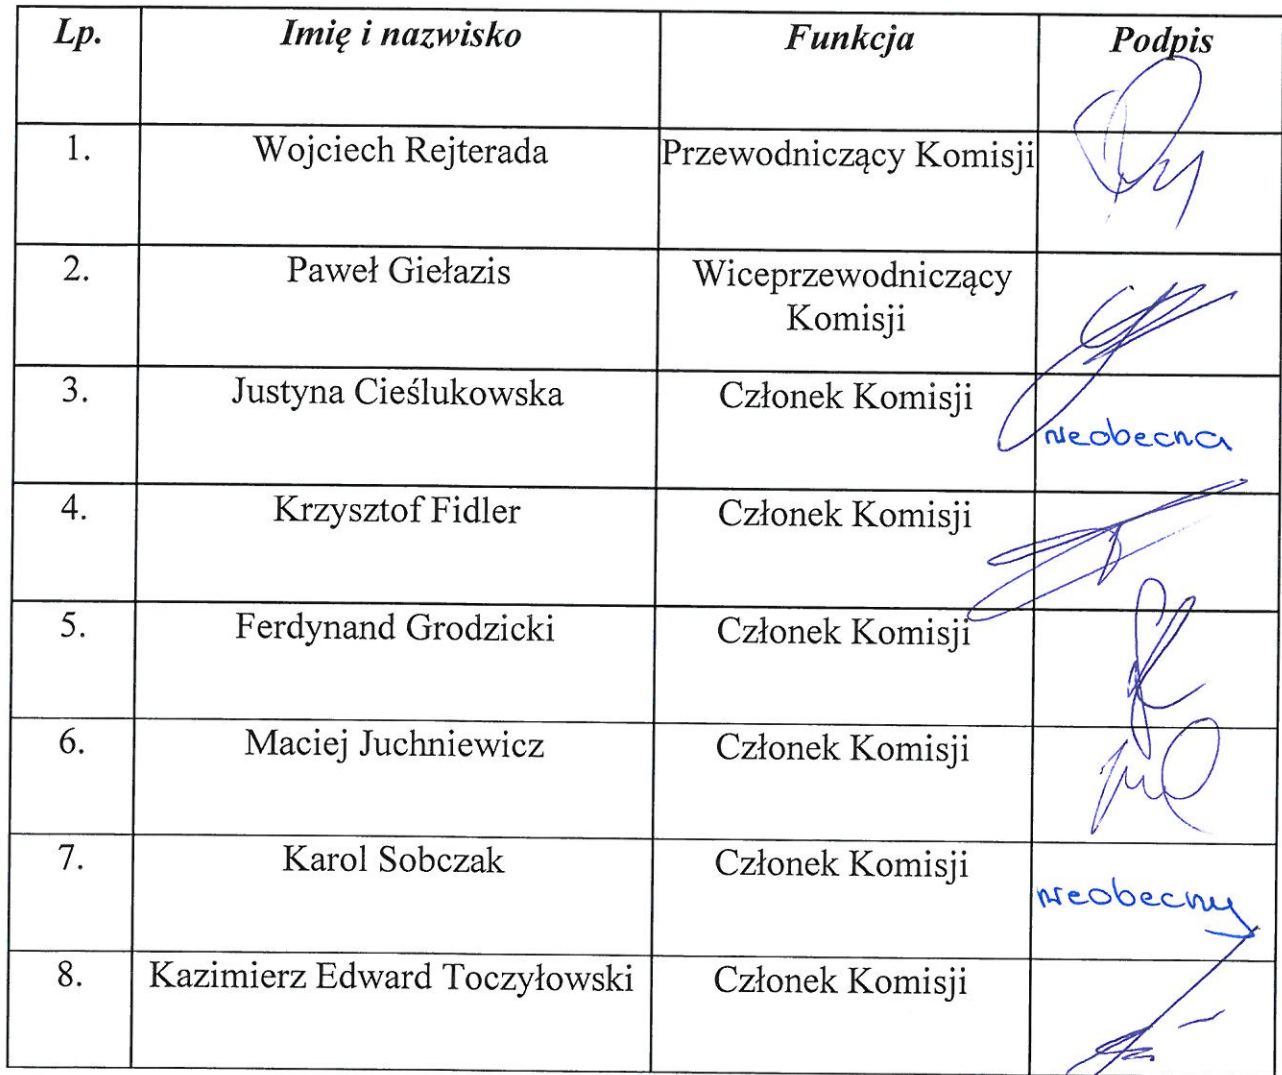 Lp. Imię i nazwisko Funkcja Podpis
1. Wojciech Rejterada Przewodniczący Komisji
2. Paweł Giełazis Wiceprzewodniczący
Komisji
3. Justyna Cieślukowska Członek Komisji nieobecna
4. Krzysztof Fidler Członek Komisji
5. Ferdynand Grodzicki Członek Komisji
6. Maciej Juchniewicz Członek Komisji
7. Karol Sobczak Członek Komisji nieobecny
8. Kazimierz Edward Toczyłowski Członek Komisji